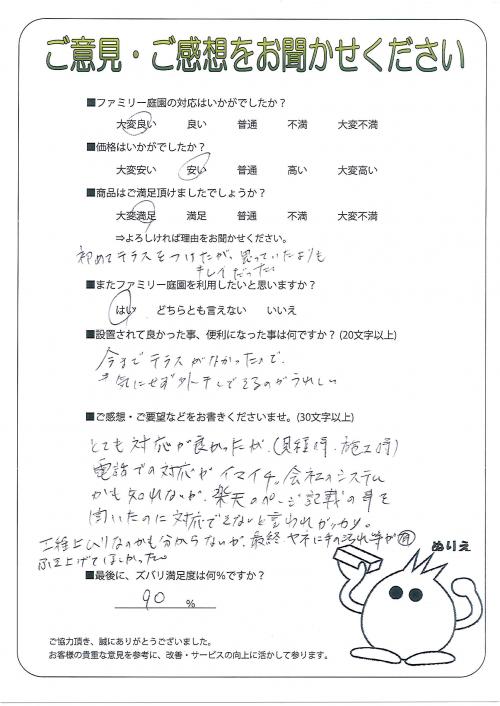 ご意見・ご感想をお聞かせください
■ファミリー庭園の対応はいかがでしたか？
大変良い 良い 普通 不満 大変不満
■価格はいかがでしたか？
大変安い 安い 普通 高い 大変高い
■商品はご満足頂けましたでしょうか？
大変満足 満足 普通 不満 大変不満
⇒よろしければ理由をお聞かせください。
初めてテラスをつけたが、思っていたよりも
キレイだった。
■またファミリー庭園を利用したいと思いますか？
はい どちらとも言えない いいえ
■設置されて良かった事、便利になった事は何ですか？(20文字以上)
今までテラスがなかったので、
気にせず外干しできるのがうれしい
■ご感想・ご要望などをお書きくださいませ。(30文字以上)
とても対応が良かったが、(見積時・施工時)
電話での対応がイマイチ。会社のシステム
かも知れないが、楽天のページ記載の事を
聞いたのに対応できないと言われガッカリ。
工程上ムリなのかも分からないが、最終ヤネに手の汚れ等が付
ふき上げてほしかった。
ぬりえ
■最後に、ズバリ満足度は何％ですか？
90 ％
ご協力頂き、誠にありがとうございました。
お客様の貴重な意見を参考に、改善・サービスの向上に活かして参ります。